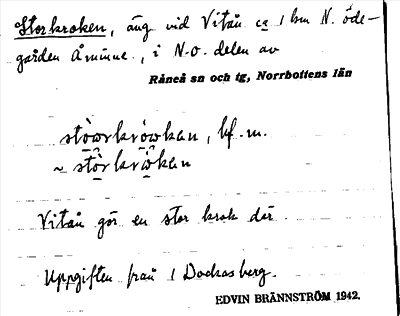 Storkroken, äng vid Vitån ca 1 km N. öde-
gården Åminne, i N.o. delen av
Råneå sn och tg, Norrbottens län
stòwrkròwkan, bf. m.
~ stòrkròkan
Vitån gör en stor krok där.
Uppgiften från 1 Dockasberg.
EDVIN BRÄNNSTRÖM 1942.